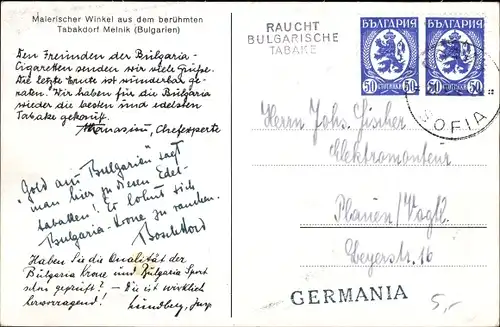 Malerischer Winkel aus dem berühmten
Tabakdorf Melnik (Bulgarien)
Den Freunden der Bulgaria-
Cigaretten senden wir viele Grüße.
Die letzte Ernte ist wunderbar ge-
raten. Wir haben für die Bulgaria
wieder die besten und edelsten
Tabake gekauft.
Athanasiu, Chefexperte
"Gold aus Bulgarien" sagt
man hier zu diesen Edel-
tabaken! Es lohnt sich
Bulgaria-Krone zu rauchen.
Haben Sie die Qualität der
Bulgaria Krone und Bulgaria Sport
schon geprüft? – Die ist wirklich
hervorragend!
Lundberg,
RAUCHT
BULGARISCHE
TABAKE
БЪЛГАРИЯ БЪЛГАРИЯ
50 СТОТИНКИ 50 50 СТОТИНКИ 50
SOFIA
Herrn Johs. Fischer
Elektromonteur
Plauen/Vogtl.
Beyerstr. 16
GERMANIA
5,-